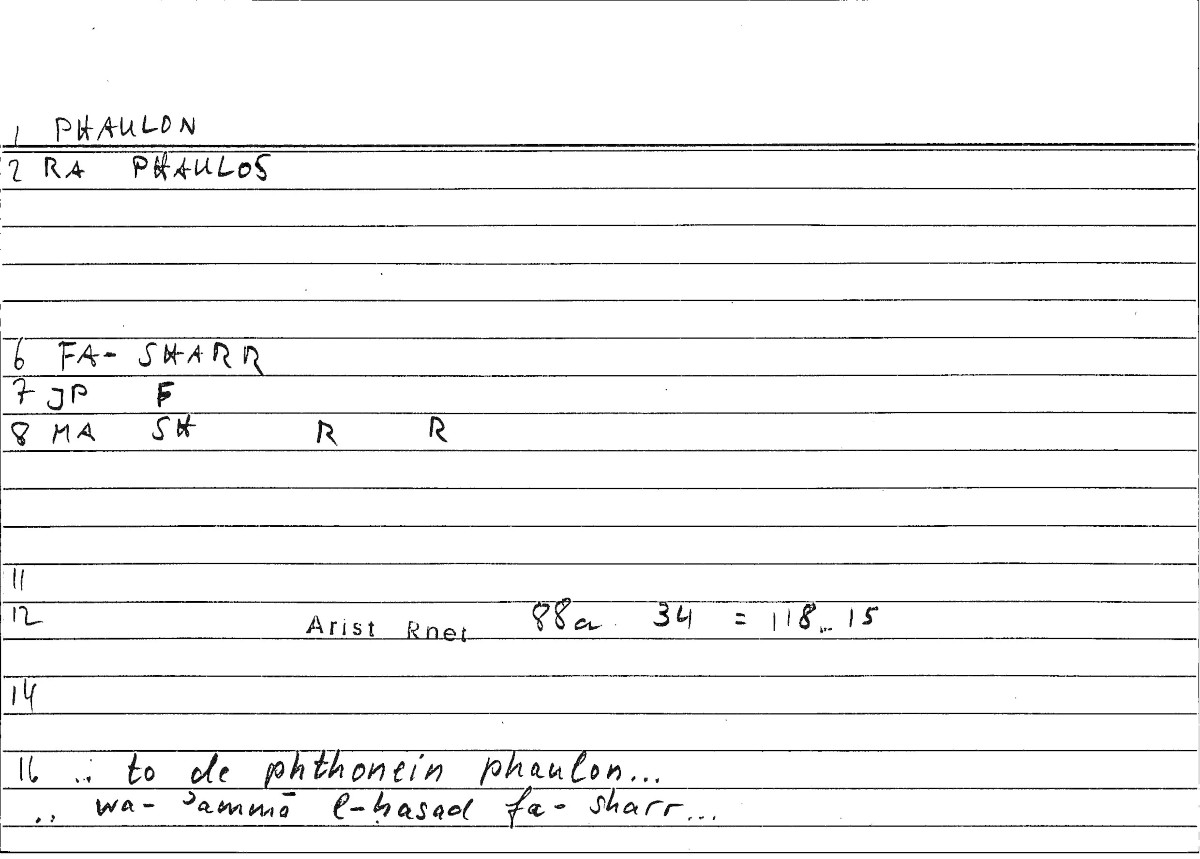 1 PHAULON
2 RA PHAULOS
6 FA- SHARR
7 JP F
8 MA SH R R
11
12 Arist Rhet 88a 34 = 118 15
14
16 .. to de phthonein phaulon...
.. wa- ʾammā l-ḥasad fa- sharr...